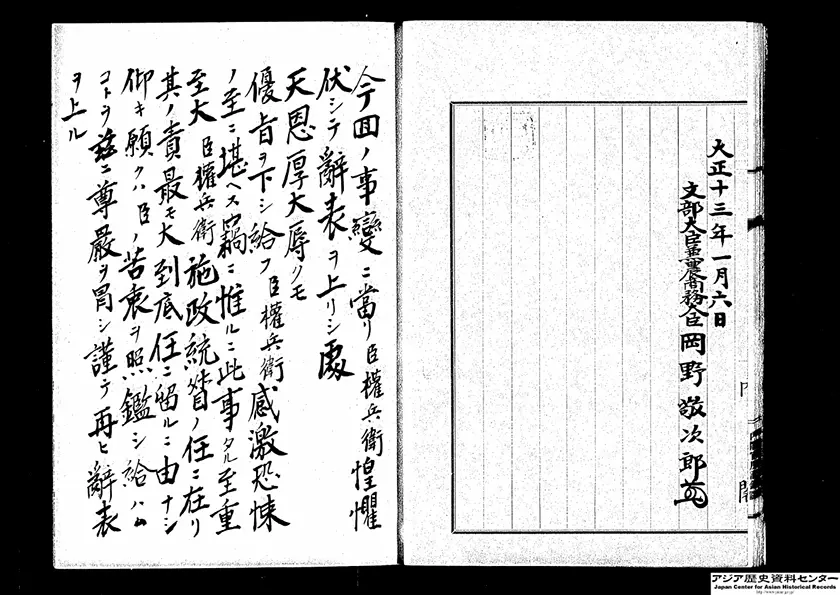 大正十三年一月六日
文部大臣兼農商務大臣岡野敬次郎
内閣
今回ノ事變ニ當リ臣權兵衛惶懼
伏シテ辭表ヲ上リシ處
天恩厚大辱クモ
優旨ヲ下シ給フ臣權兵衛感激恐悚
ノ至ニ堪ヘス竊ニ惟ルニ此事タル至重
至大臣權兵衛施政統督ノ任ニ在リ
其ノ責最モ大到底任ニ留ルニ由ナシ
仰キ願クハ臣ノ苦衷ヲ照鑑シ給ハム
コトヲ茲ニ尊嚴ヲ冒シ謹テ再ヒ辭表
ヲ上ル
アジア歴史資料センター
Japan Center for Asian Historical Records
http://www.jacar.go.jp/